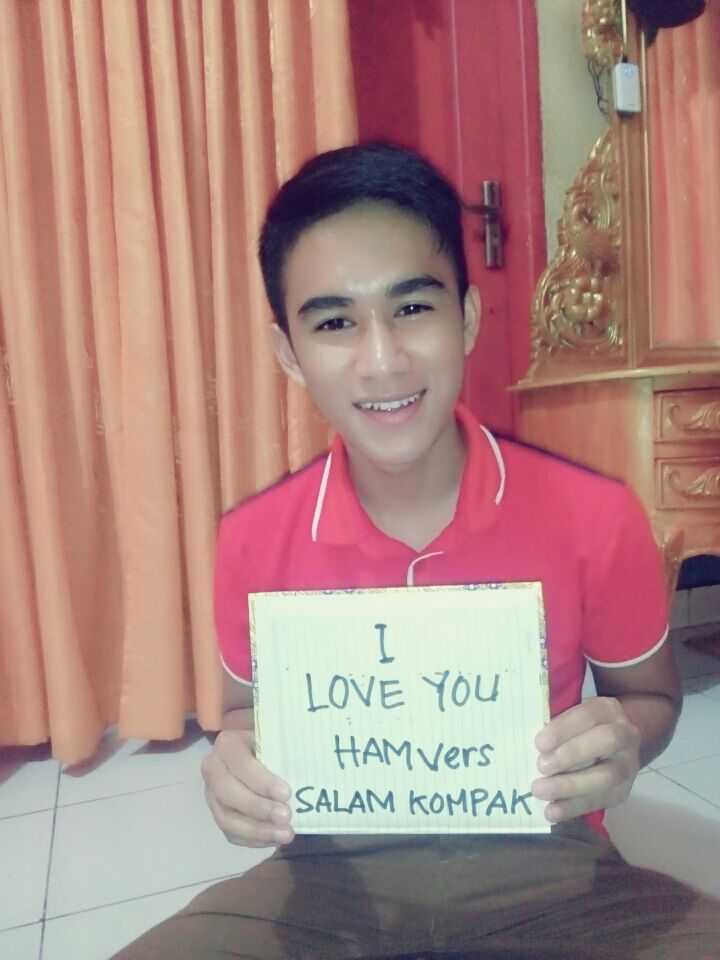 I
LOVE YOU
HAMVers
SALAM KOMPAK